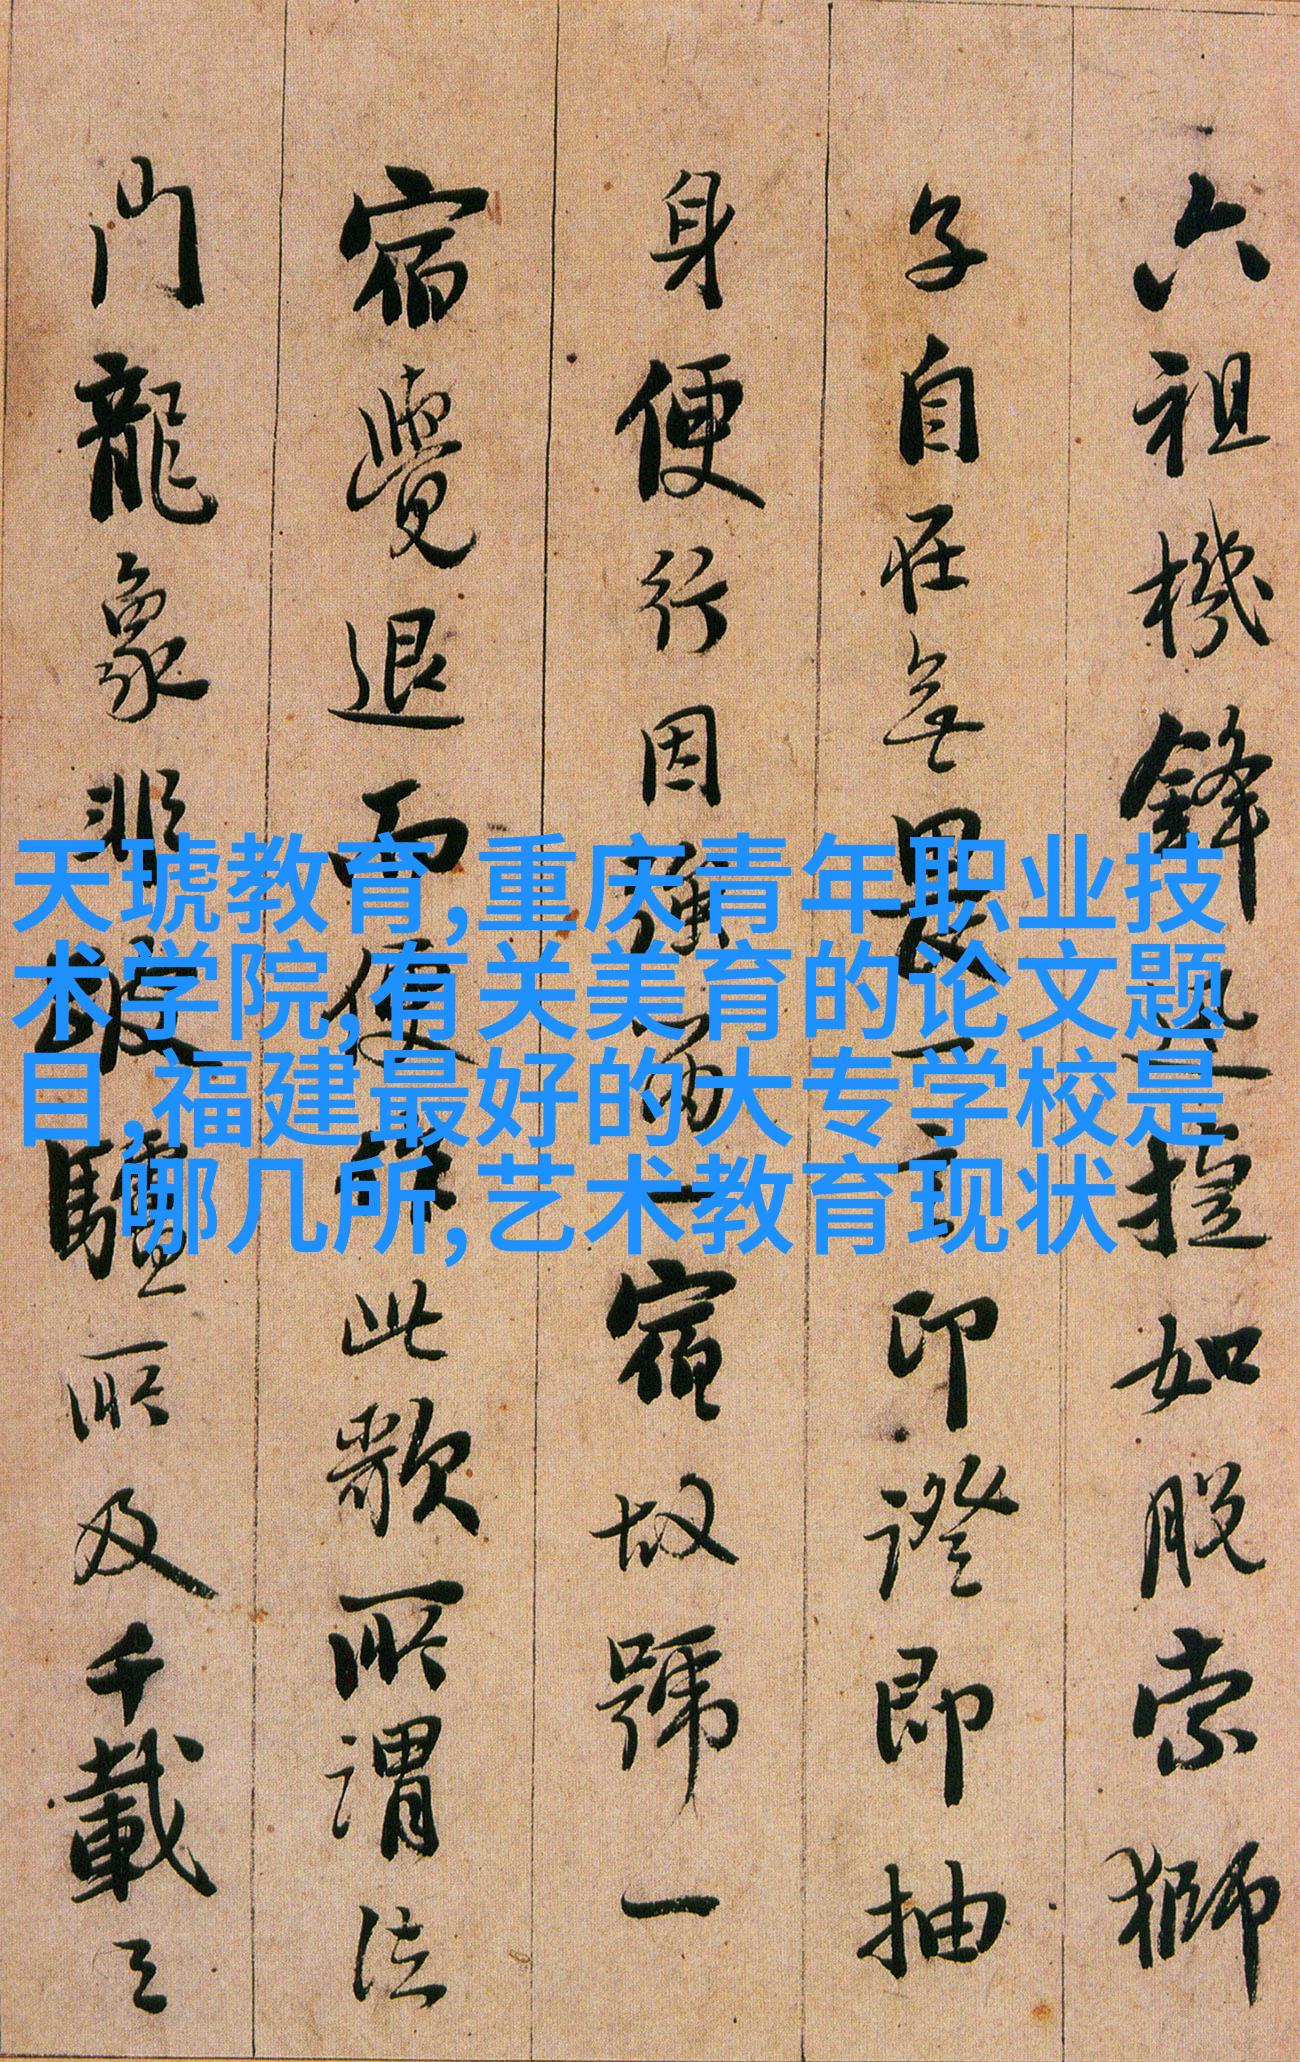 六祖機鋒迅捷如脫索獅
子自在無畏一言印證即抽
身便行因強留一宿故號一
宿覺退而作此歌所謂法
門龍象非跛驢所及千載之
天琥教育,重庆青年职业技
术学院,有关美育的论文题
目,福建最好的大专学校是
哪几所,艺术教育现状